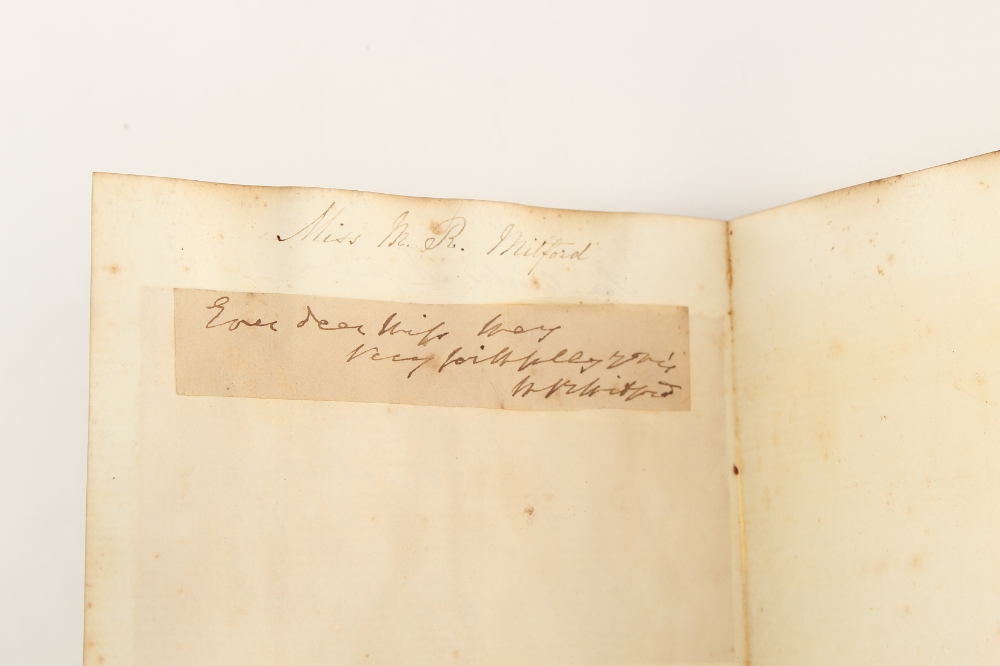 Miss M. R. Mitford
Ever dear Miss
Very faithfully yours
M R Mitford